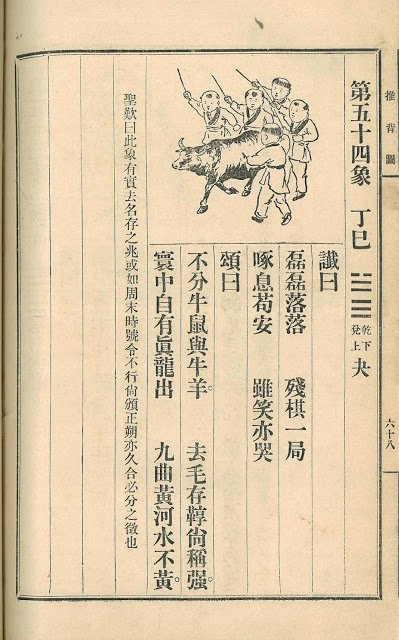 推背圖
六十八
第五十四象 丁巳 ䷪ 乾下兌上 夬
讖曰
磊磊落落 殘棋一局
啄息苟安 雖笑亦哭
頌曰
不分牛鼠與牛羊。 去毛存鞟尙稱强。
寰中自有眞龍出 九曲黃河水不黃。
聖歎曰此象有實去名存之兆或如周末時號令不行尙頒正朔亦久合必分之徵也